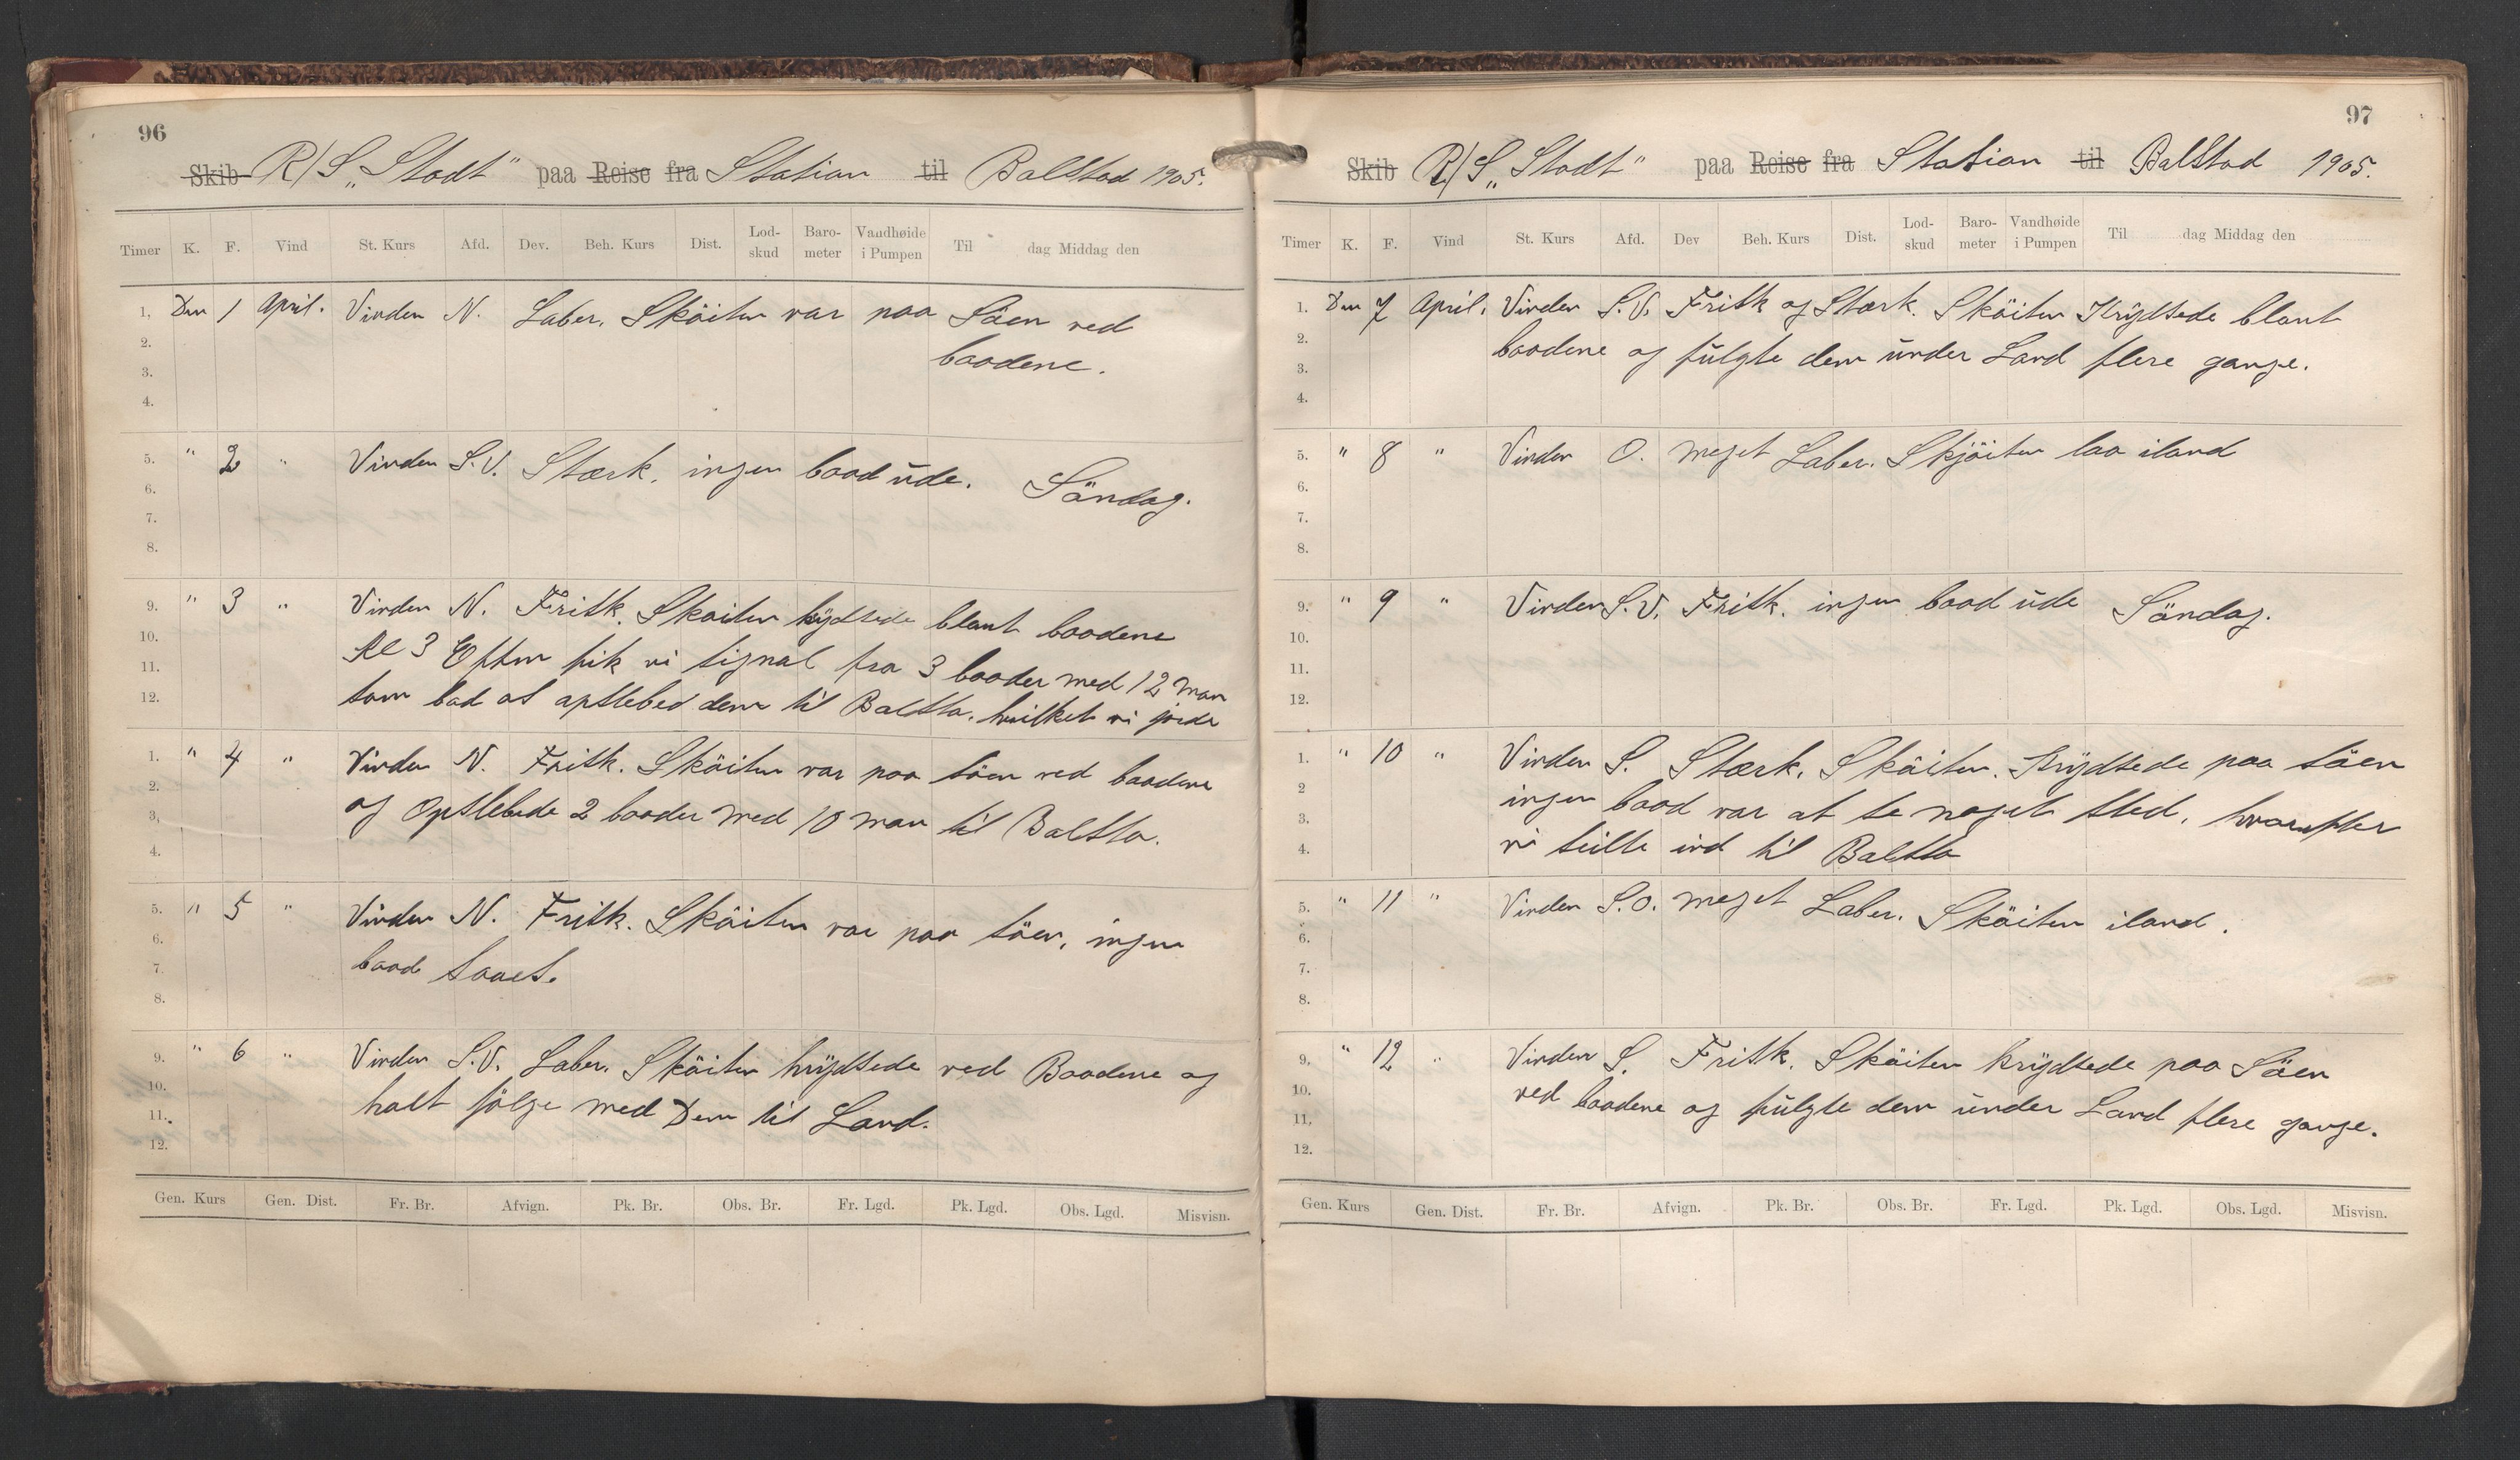 96
Skib R/S „Stadt" paa Reise fra Station til Balstad 1905.
Timer K. F. Vind St. Kurs Afd. Dev. Beh. Kurs Dist. Lod-skud Baro-meter Vandhøide i Pumpen Til dag Middag den
1. Den 1 April. Vinden N. Laber. Sköiten var paa Söen ved
2. baadene.
3.
4.
5. " 2 " Vinden S.V. Stærk. ingen baad ude. Söndag.
6.
7.
8.
9. " 3 " Vinden N. Frisk. Skoiten krydsede blant baadene
10. Kl 3 Efttm fik vi signal fra 3 baader med 12 man
11. som bad os opslebed dem til Balsta. hvilket vi jorde
12.
1. " 4 " Vinden N. Frisk. Sköiten var paa söen ved baadene
2. og Opslebede 2 baader med 10 man til Balsta.
3.
4.
5. " 5 " Vinden N. Frisk. Sköiten var paa söen, ingen
6. baad saaes.
7.
8.
9. " 6 " Vinden S.V. Laber. Sköiten krydsede ved Baadene og
10. halt fölge med Dem til Land.
11.
12.
Gen. Kurs Gen. Dist. Fr. Br. Afvign. Pk. Br. Obs. Br. Fr. Lgd. Pk. Lgd. Obs. Lgd. Misvisn.
97
Skib R/S „Stadt" paa Reise fra Station til Balstad 1905.
Timer K. F. Vind St. Kurs Afd. Dev Beh. Kurs Dist. Lod-skud Baro-meter Vandhøide i Pumpen Til dag Middag den
1. Den 7 April. Vinden S.V. Frisk og Stærk. Sköiten Krydsede blant
2. baadene og fulgte dem under Land flere gange.
3.
4.
5. " 8 " Vinden O. meget Laber. Skjöiten laa iland
6.
7.
8.
9. " 9 " Vinden S.V. Frisk. ingen baad ude Söndag.
10.
11.
12.
1. " 10 " Vinden S. Stærk. Sköiten. Krydsede paa söen
2 ingen baad var at se noget sted, hvorefter
3. vi seilte ind til Balsta
4.
5. " 11 " Vinden S.O. meget Laber. Sköiten iland.
6.
7.
8.
9. " 12 " Vinden S. Frisk. Sköiten krydsede paa Söen
10. ved baadene og fulgte dem under Land flere gange.
11.
12.
Gen. Kurs Gen. Dist. Fr. Br. Afvign. Pk. Br. Obs. Br. Fr. Lgd. Pk. Lgd. Obs. Lgd. Misvisn.